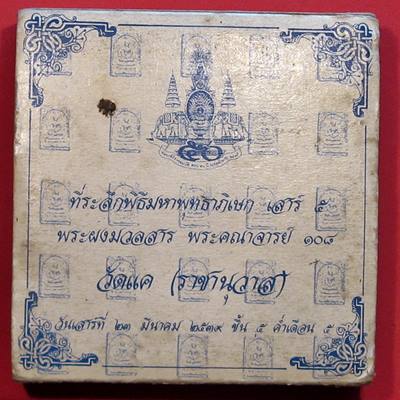 ๕๐
ที่ระลึกพิธีมหาพุทธาภิเษก เสาร์ ๕
พระผงมวลสาร พระคณาจารย์ ๑๐๘
วัดแค (ราชานุวาส)
วันเสาร์ที่ ๒๓ มีนาคม ๒๕๓๙ ขึ้น ๕ ค่ำเดือน ๕